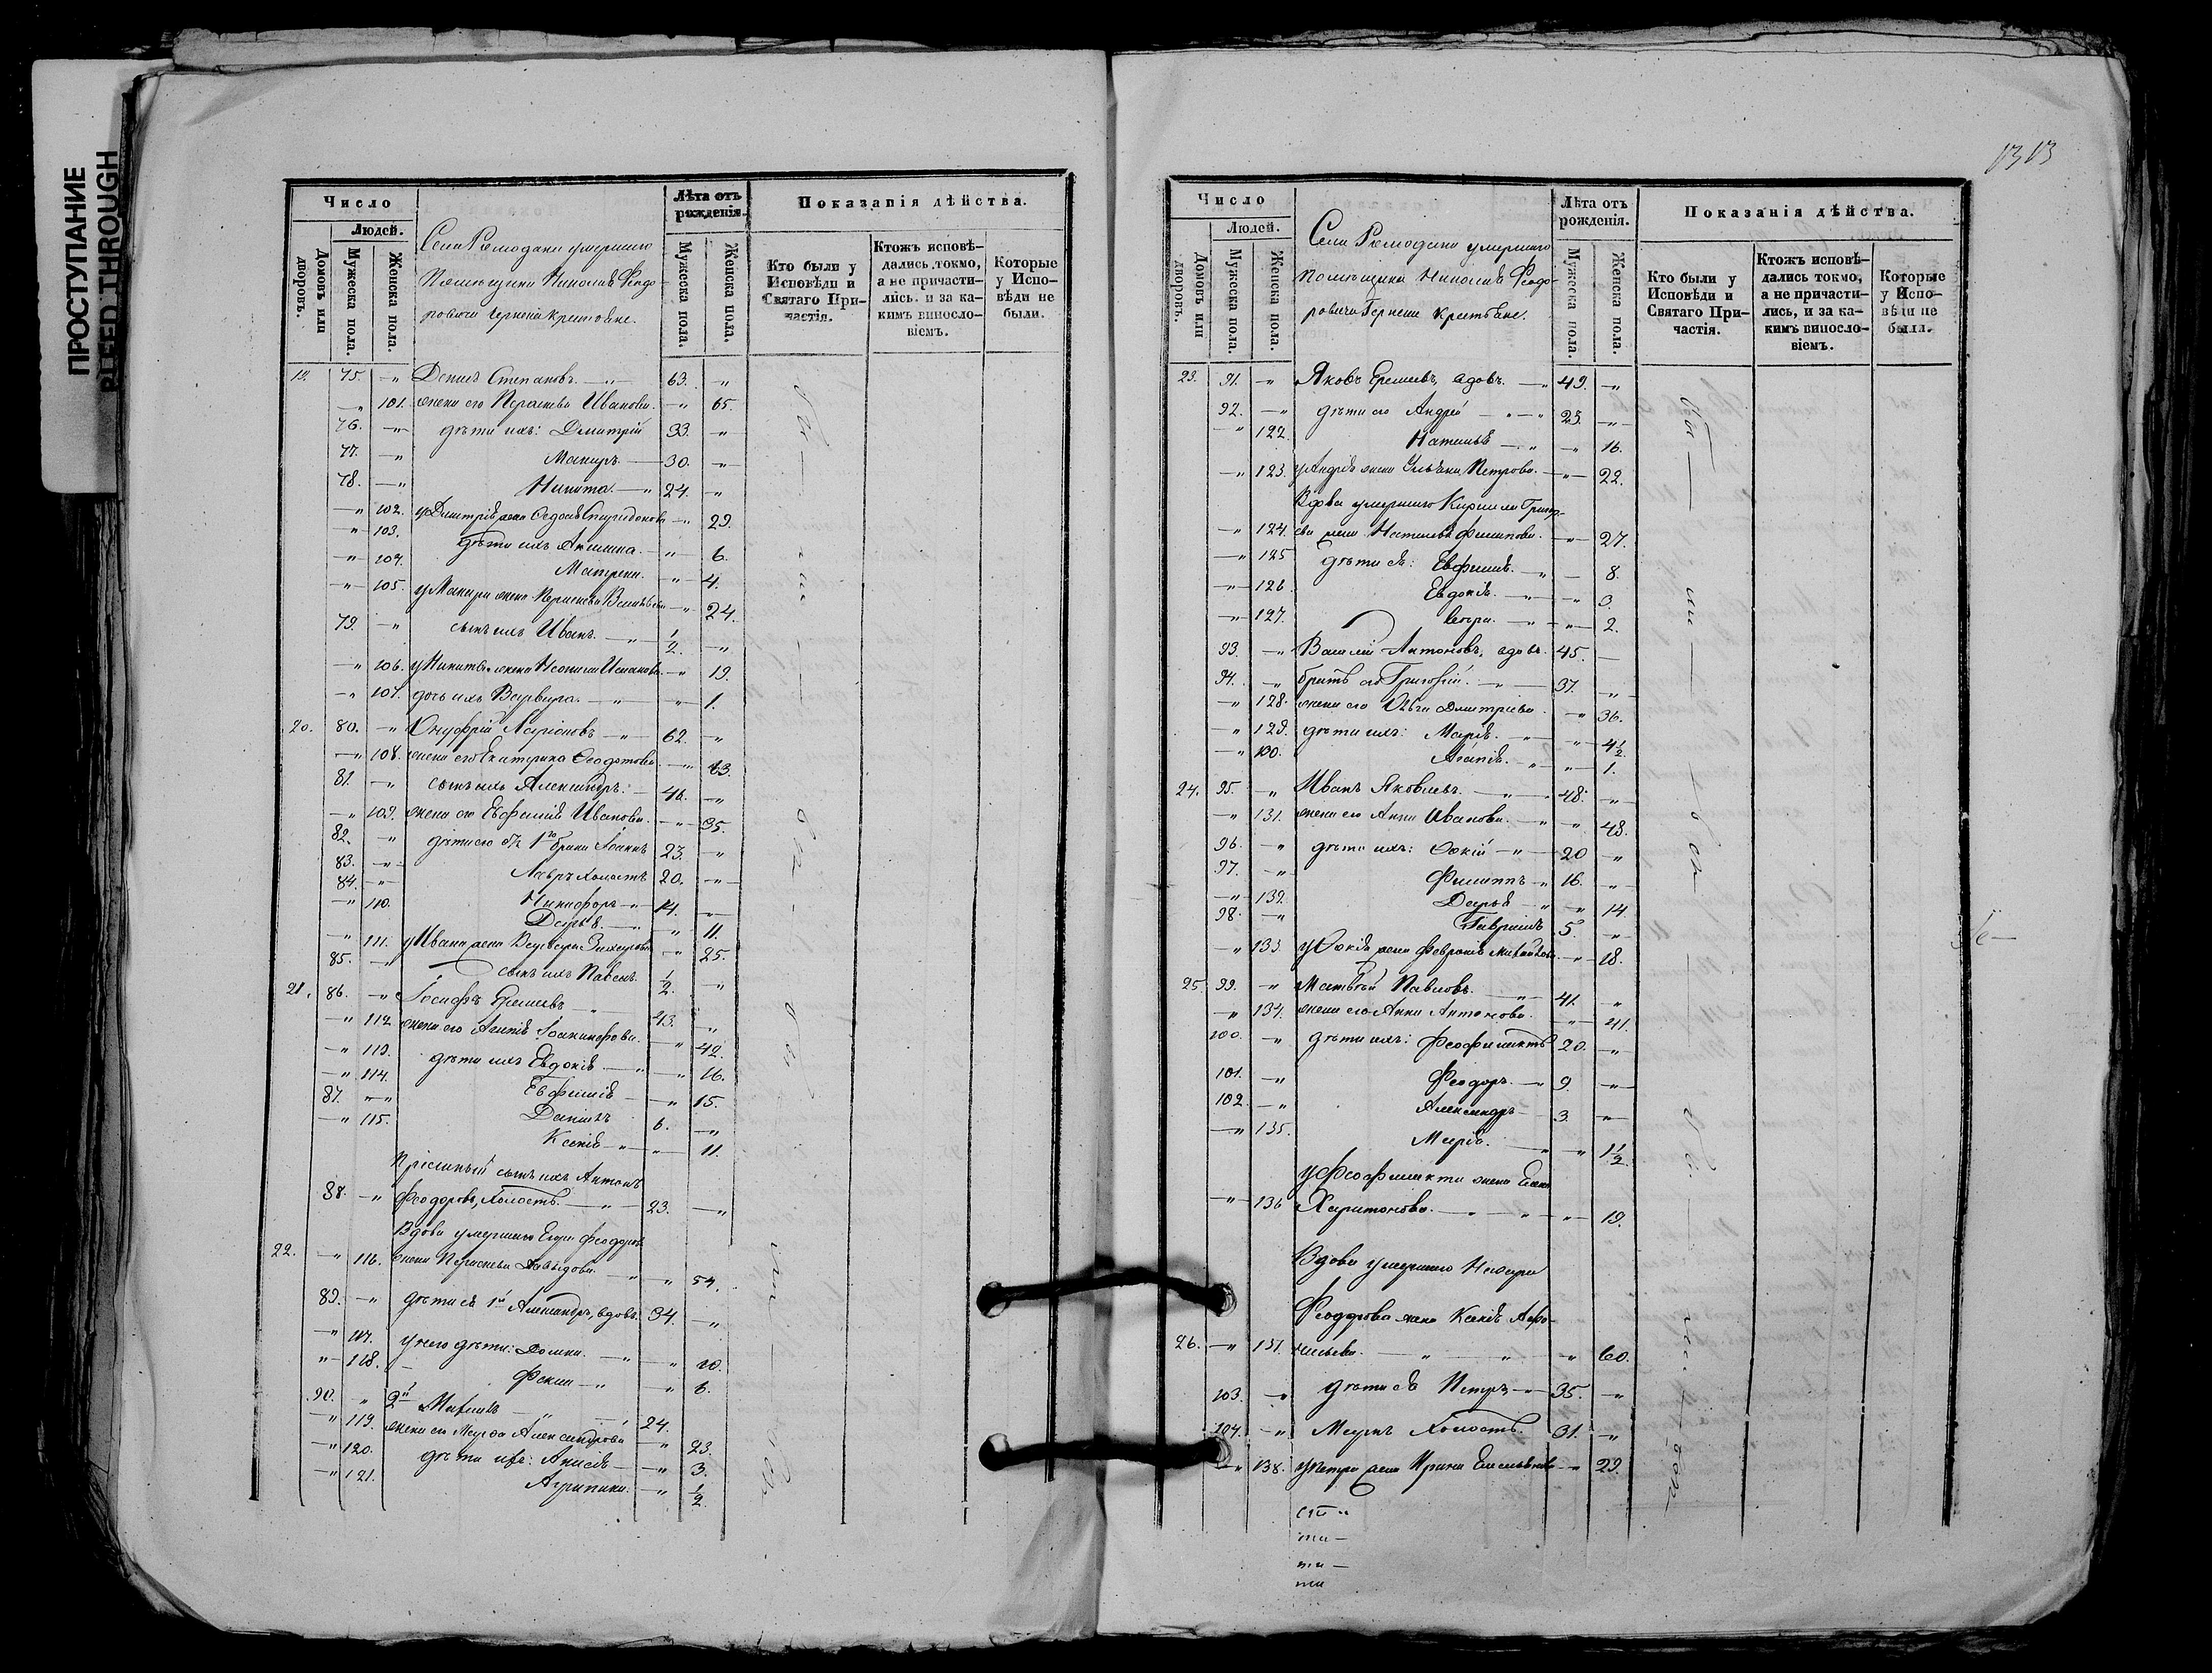 ПРОСТУПАНИЕ
BLEED THROUGH
Число
Людей.
Домовъ или дворовъ.
Мужеска пола.
Женска пола.
Села Ромодана умершаго
Помѣщика Николая Ѳеодо-
ровича крестьяне.
Лѣта отъ рожденія.
Мужеска пола.
Женска пола.
Показанія дѣйства.
Кто были у Исповѣди и Святаго Причастія.
Ктожъ исповѣ-дались токмо, а не причасти-лись, и за ка-кимъ винословіемъ.
Которые у Исповѣди не были.
19. 75. " Денисъ Степановъ. " 63. "
" 101. жена его Параскева Иванова. " 65.
76. " дѣти ихъ: Дмитрій 33. "
77. " Макаръ. 30. "
78. " Никита. " 24. "
" 102. у Дмитрія жена Спиридонова " 29.
" 103. дѣти ихъ Акилина. " 6.
" 104. Матрена. " 4.
" 105. у Макара жена Параскева " 24.
79. " сынъ ихъ Иванъ. " 1/2. "
" 106. у Никиты жена " 19.
" 107. дочь ихъ Варвара. " " 1.
20. 80. " Онуфрій Ларіоновъ " 62. "
" 108. жена его Екатерина Ѳеодотова " 63.
81. " сынъ ихъ Александръ. 46. "
" 109. жена его Евфимія Иванова. " 35.
82. " дѣти его отъ 1го брака Іоаннъ 23. "
83. " Лавръ холостъ 20. "
84. " Никифоръ " 14. "
" 110. Дарья. " " 11.
" 111. у Ивана жена Варвара Захарова " 25.
85. " сынъ ихъ Павелъ. 1/2. "
21. 86. " Іосифъ " 43. "
" 112. жена его Агапія " 42.
" 113. дѣти ихъ Евдокія " " 16.
" 114. Евфимія " 15.
87. " Даніилъ 6. "
" 115. Ксенія " " 11.
Пріемный сынъ ихъ Антонъ
88. " Ѳеодоровъ, холостъ. " 23. "
Вдова умершаго Егора Ѳеодорова
22. " 116. жена Параскева Давыдова. " " 54.
89. " дѣти ея 1й Александръ, вдовъ. 34. "
" 117. у него дѣти: Домна. " " 10.
" 118. Ѳекла " " 6.
90. " 2й " 24.
" 119. жена его Марѳа Александрова " 23.
" 120. дѣти ихъ: Анисія " 3.
" 121. Агрипина. " 1/2.
1313
Число
Людей.
Домовъ или дворовъ.
Мужеска пола.
Женска пола.
Села Ромодана умершаго
помѣщика Николая Ѳеодо-
ровича крестьяне.
Лѣта отъ рожденія.
Мужеска пола.
Женска пола.
Показанія дѣйства.
Кто были у Исповѣди и Святаго Причастія.
Ктожъ исповѣ-дались токмо, а не причасти-лись, и за ка-кимъ винословіемъ.
Которые у Исповѣди не были.
23. 91. " Яковъ вдовъ. " 49. "
92. " дѣти его Андрей " 23. "
" 122. Наталья " " 16.
" 123. у Андрея жена Ульяна Петрова. " 22.
Вдова умершаго Кирилла Григор-
" 124. ева жена Наталья Филипова. " 27.
" 125 дѣти ея: Евфимія. " 8.
" 126. Евдокія. " " 3.
" 127. " " 2.
93. " Василій Антоновъ, вдовъ. 45.
94. " братъ его Григорій. " 37. "
" 128. жена его Дмитріева " 36.
" 129. дѣти ихъ: Марія. " " 4 1/2
" 130. Агапія. " " 1.
24. 95. " Иванъ Яковлевъ. " 48. "
" 131. жена его Анна Иванова. " " 48.
96. " дѣти ихъ: " 20 "
97. " Филиппъ " 16. "
" 132. Дарья " " 14.
98. " Гавріилъ 5. "
" 133 жена Февронія Михайлова " 18.
25. 99. " Матвѣй Павловъ. " 41. "
" 134. жена его Анна Антонова. " 41.
100. " дѣти ихъ: Ѳеофилактъ 20. "
101. " Ѳеодоръ. " 9. "
102. " Александръ 3 "
" 135. Марія. " " 1 1/2
у Ѳеофилакта жена
" 136 Харитонова. " " " 19.
Вдова умершаго Назара
Ѳеодорова жена Ксенія Аѳа-
26. " 137. насьева. " " " 60.
103. " дѣти ея Петръ " 35. "
104. " холостъ. 31. "
" 138. у Петра жена Ирина Емельянова " 29.